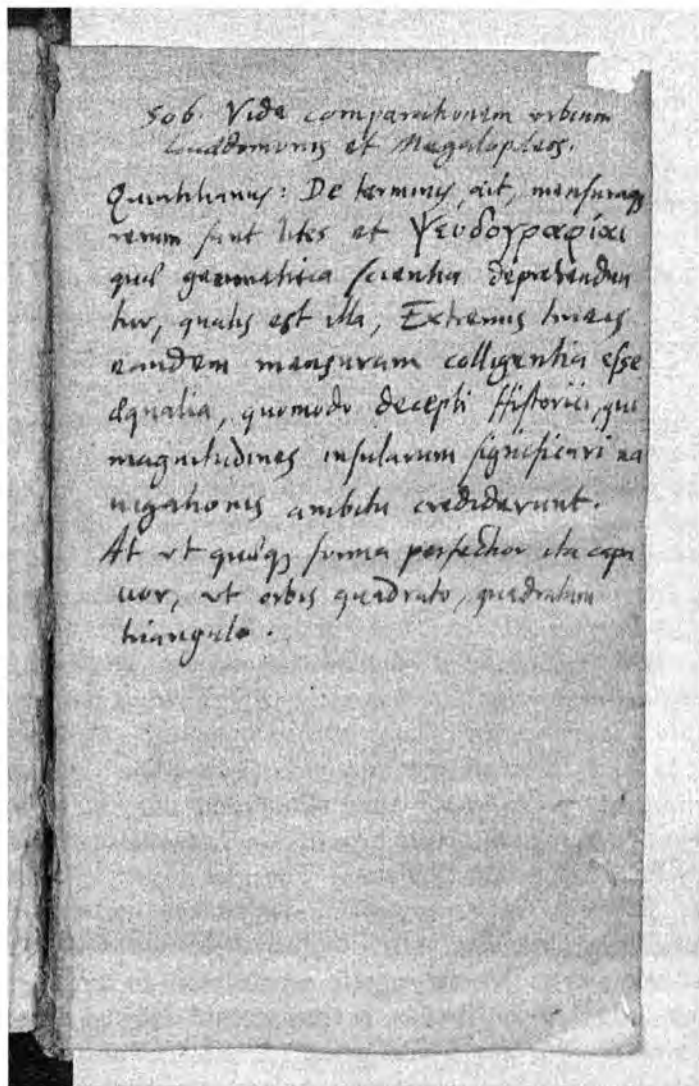 506. Vide comparationem urbium
Lacedemonis et Megalopleos.
Quintilianus: De terminis, ait, mensuraq;
rerum sunt lites et Ψευδογραφίαι
quæ geometrica scientia deprehendun
tur, qualis est illa, Extremis lineis
eandem mensuram colligentia esse
æqualia, quomodo decepti Historici, qui
magnitudines insularum significari na
vigationis ambitu crediderunt.
At vt quæq; forma perfectior ita capa
cior, vt orbis quadrato, quadratum
triangulo.